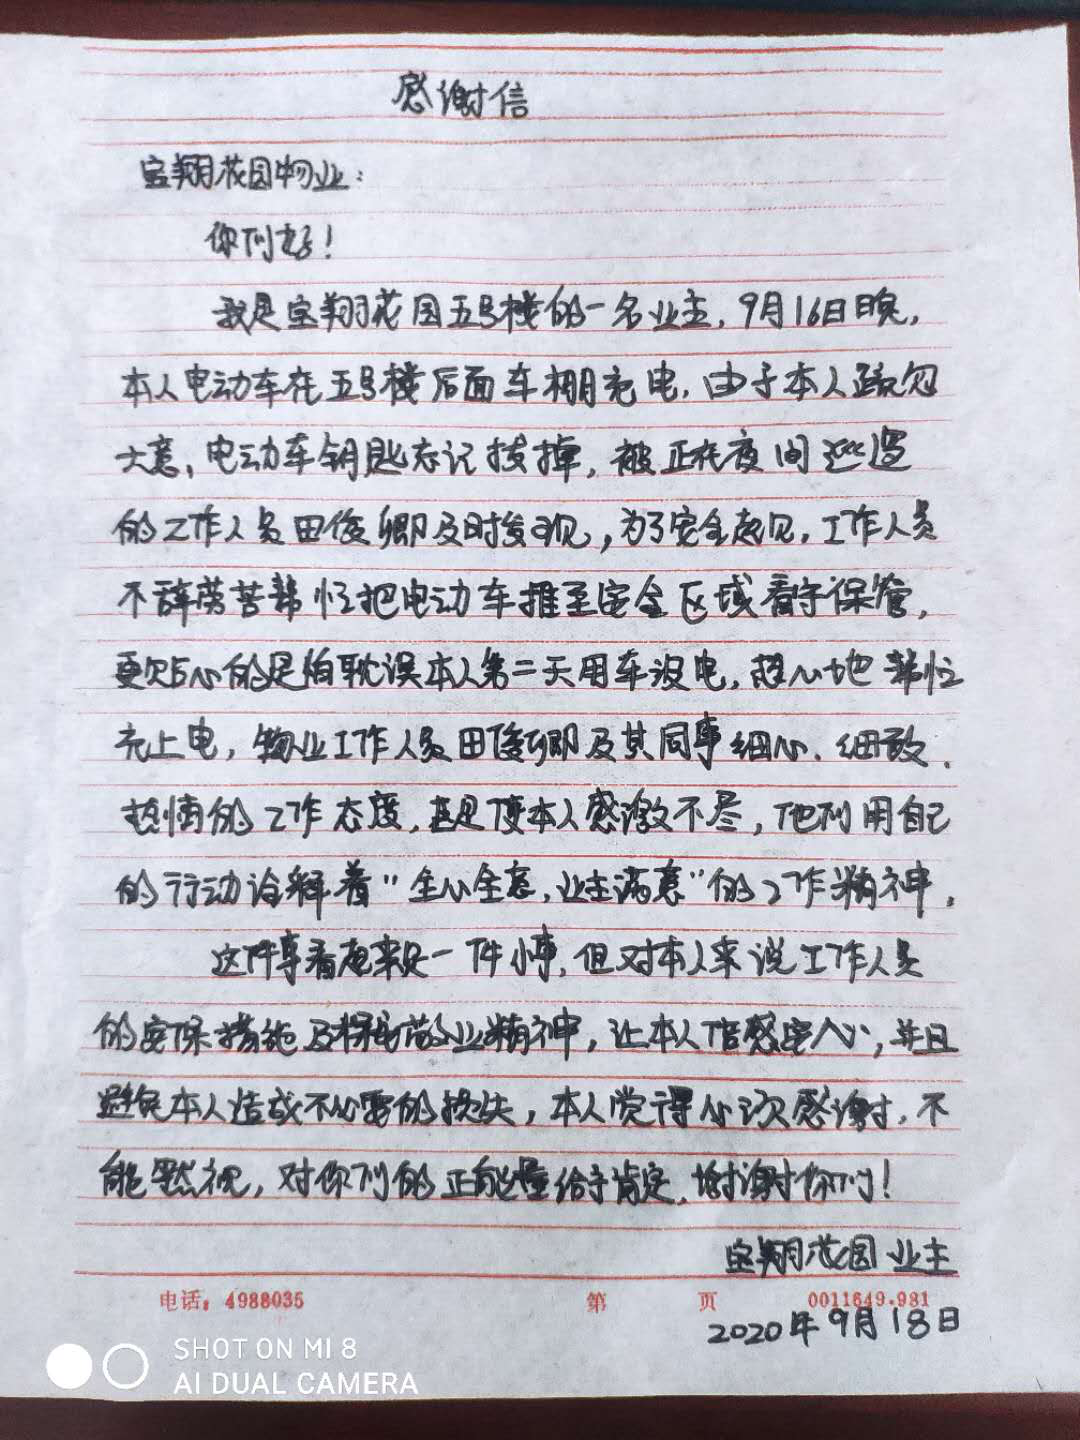 感谢信
宝翔花园物业：
你们好！
我是宝翔花园五号楼的一名业主，9月16日晚，
本人电动车在五号楼后面车棚充电，由于本人疏忽
大意，电动车钥匙忘记拔掉，被正在夜间巡逻
的工作人员田俊卿及时发现，为了安全起见，工作人员
不辞劳苦帮忙把电动车推至安全区域看守保管，
更贴心的是怕耽误本人第二天用车没电，超心地帮忙
充上电，物业工作人员田俊卿及其同事细心、细致、
热情的工作态度，真是使本人感激不尽，他们用自己
的行动诠释着"全心全意，业主满意"的工作精神。
这件事看起来是一件小事，但对本人来说工作人员
的安保措施及敬业精神，让本人倍感安心，并且
避免本人造成不必要的损失，本人觉得必须感谢，不
能默视，对你们的正能量给予肯定，谢谢你们！
宝翔花园业主
电话：4988035 第 页 0011649.981
2020年9月18日
SHOT ON MI 8
AI DUAL CAMERA